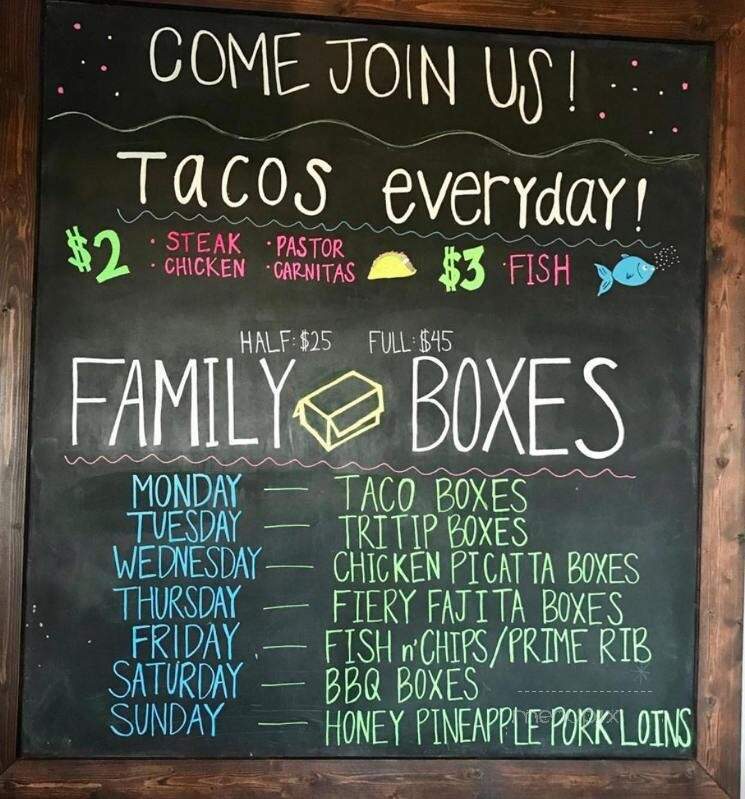 COME JOIN US!
TACOS everyday!
$2 · STEAK · PASTOR $3 · FISH
· CHICKEN · CARNITAS
HALF: $25 FULL: $45
FAMILY BOXES
MONDAY — TACO BOXES
TUESDAY — TRITIP BOXES
WEDNESDAY — CHICKEN PICATTA BOXES
THURSDAY — FIERY FAJITA BOXES
FRIDAY — FISH n' CHIPS/PRIME RIB
SATURDAY — BBQ BOXES
SUNDAY — HONEY PINEAPPLE PORK LOINS